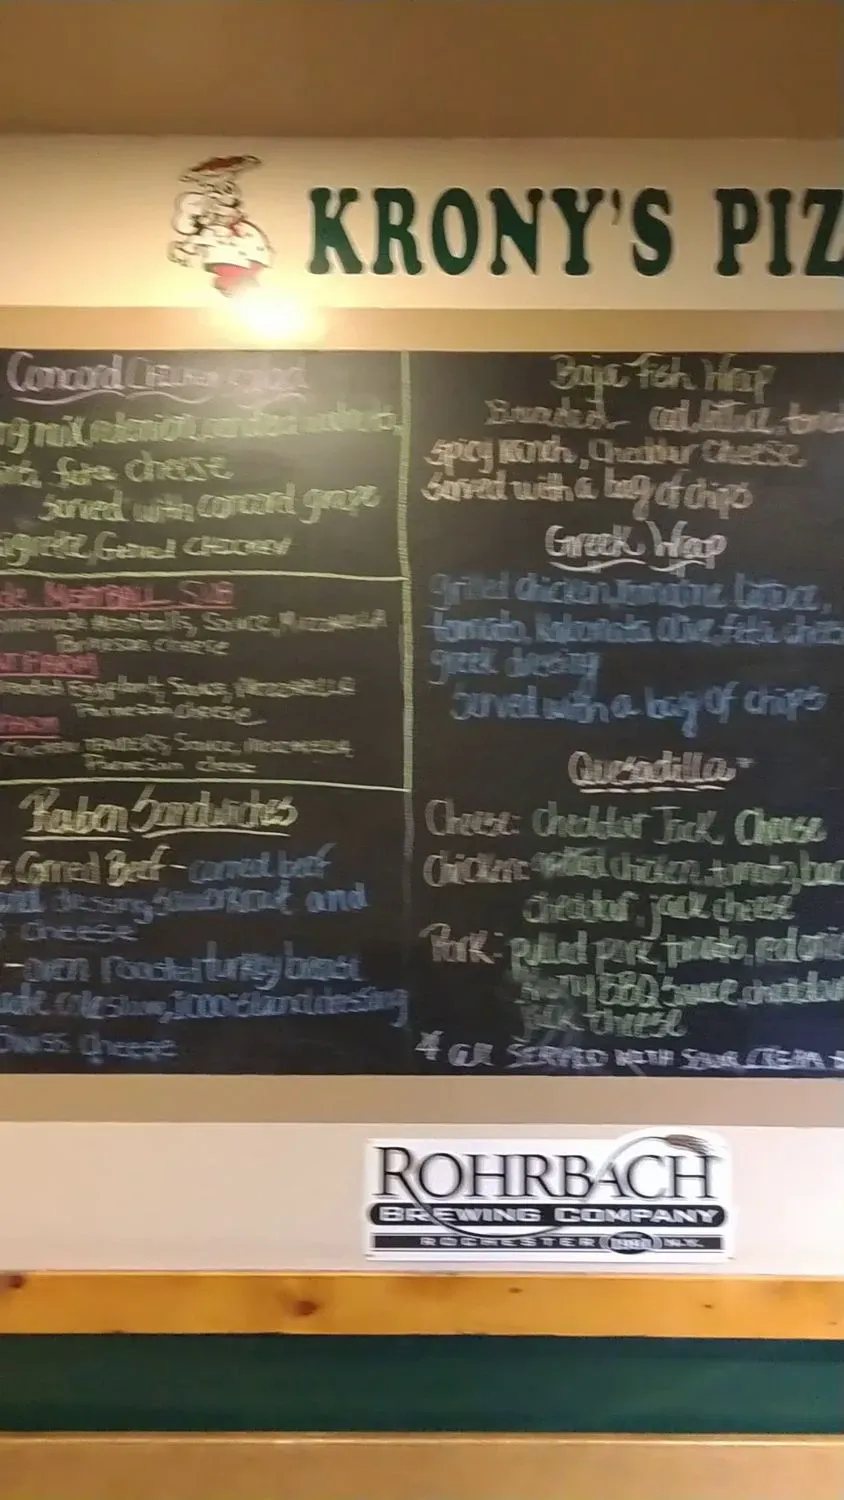 KRONY'S PIZ
Concord Chicken Salad
ng mix, red onion, candied walnuts,
with feta cheese
Served with concord grape
aigrette, Grilled CHICKEN
MEATBALL SUB
memade Meatballs, Sauce, Mozzarella
Parmesan cheese
Eggplant, Sauce, MOZZARELLA
Parmesan cheese
CHICKEN TENDERS, Sauce, Mozzarella
Parmesan cheese
Ruben Sandwiches
Corned Beef - corned beef
dressing, sauerkraut and
cheese
- oven roasted turkey breast
coleslaw, 1000 island dressing
Swiss cheese
Baja Fish Wrap
Breaded cod, lettuce,
spicy Ranch, Cheddar Cheese
Served with a bag of chips
Greek Wrap
grilled chicken, romaine lettuce,
tomato, kalamata olive, feta chee
greek dressing
Served with a bag of chips
Quesadilla *
Cheese: cheddar Jack Cheese
Chicken: grilled chicken, tomato, bac
cheddar, jack cheese
Pork: pulled pork, tomato, red oni
BBQ sauce, chedda
jack cheese
* all SERVED WITH SOUR CREAM
ROHRBACH
BREWING COMPANY
ROCHESTER 1991 N.Y.